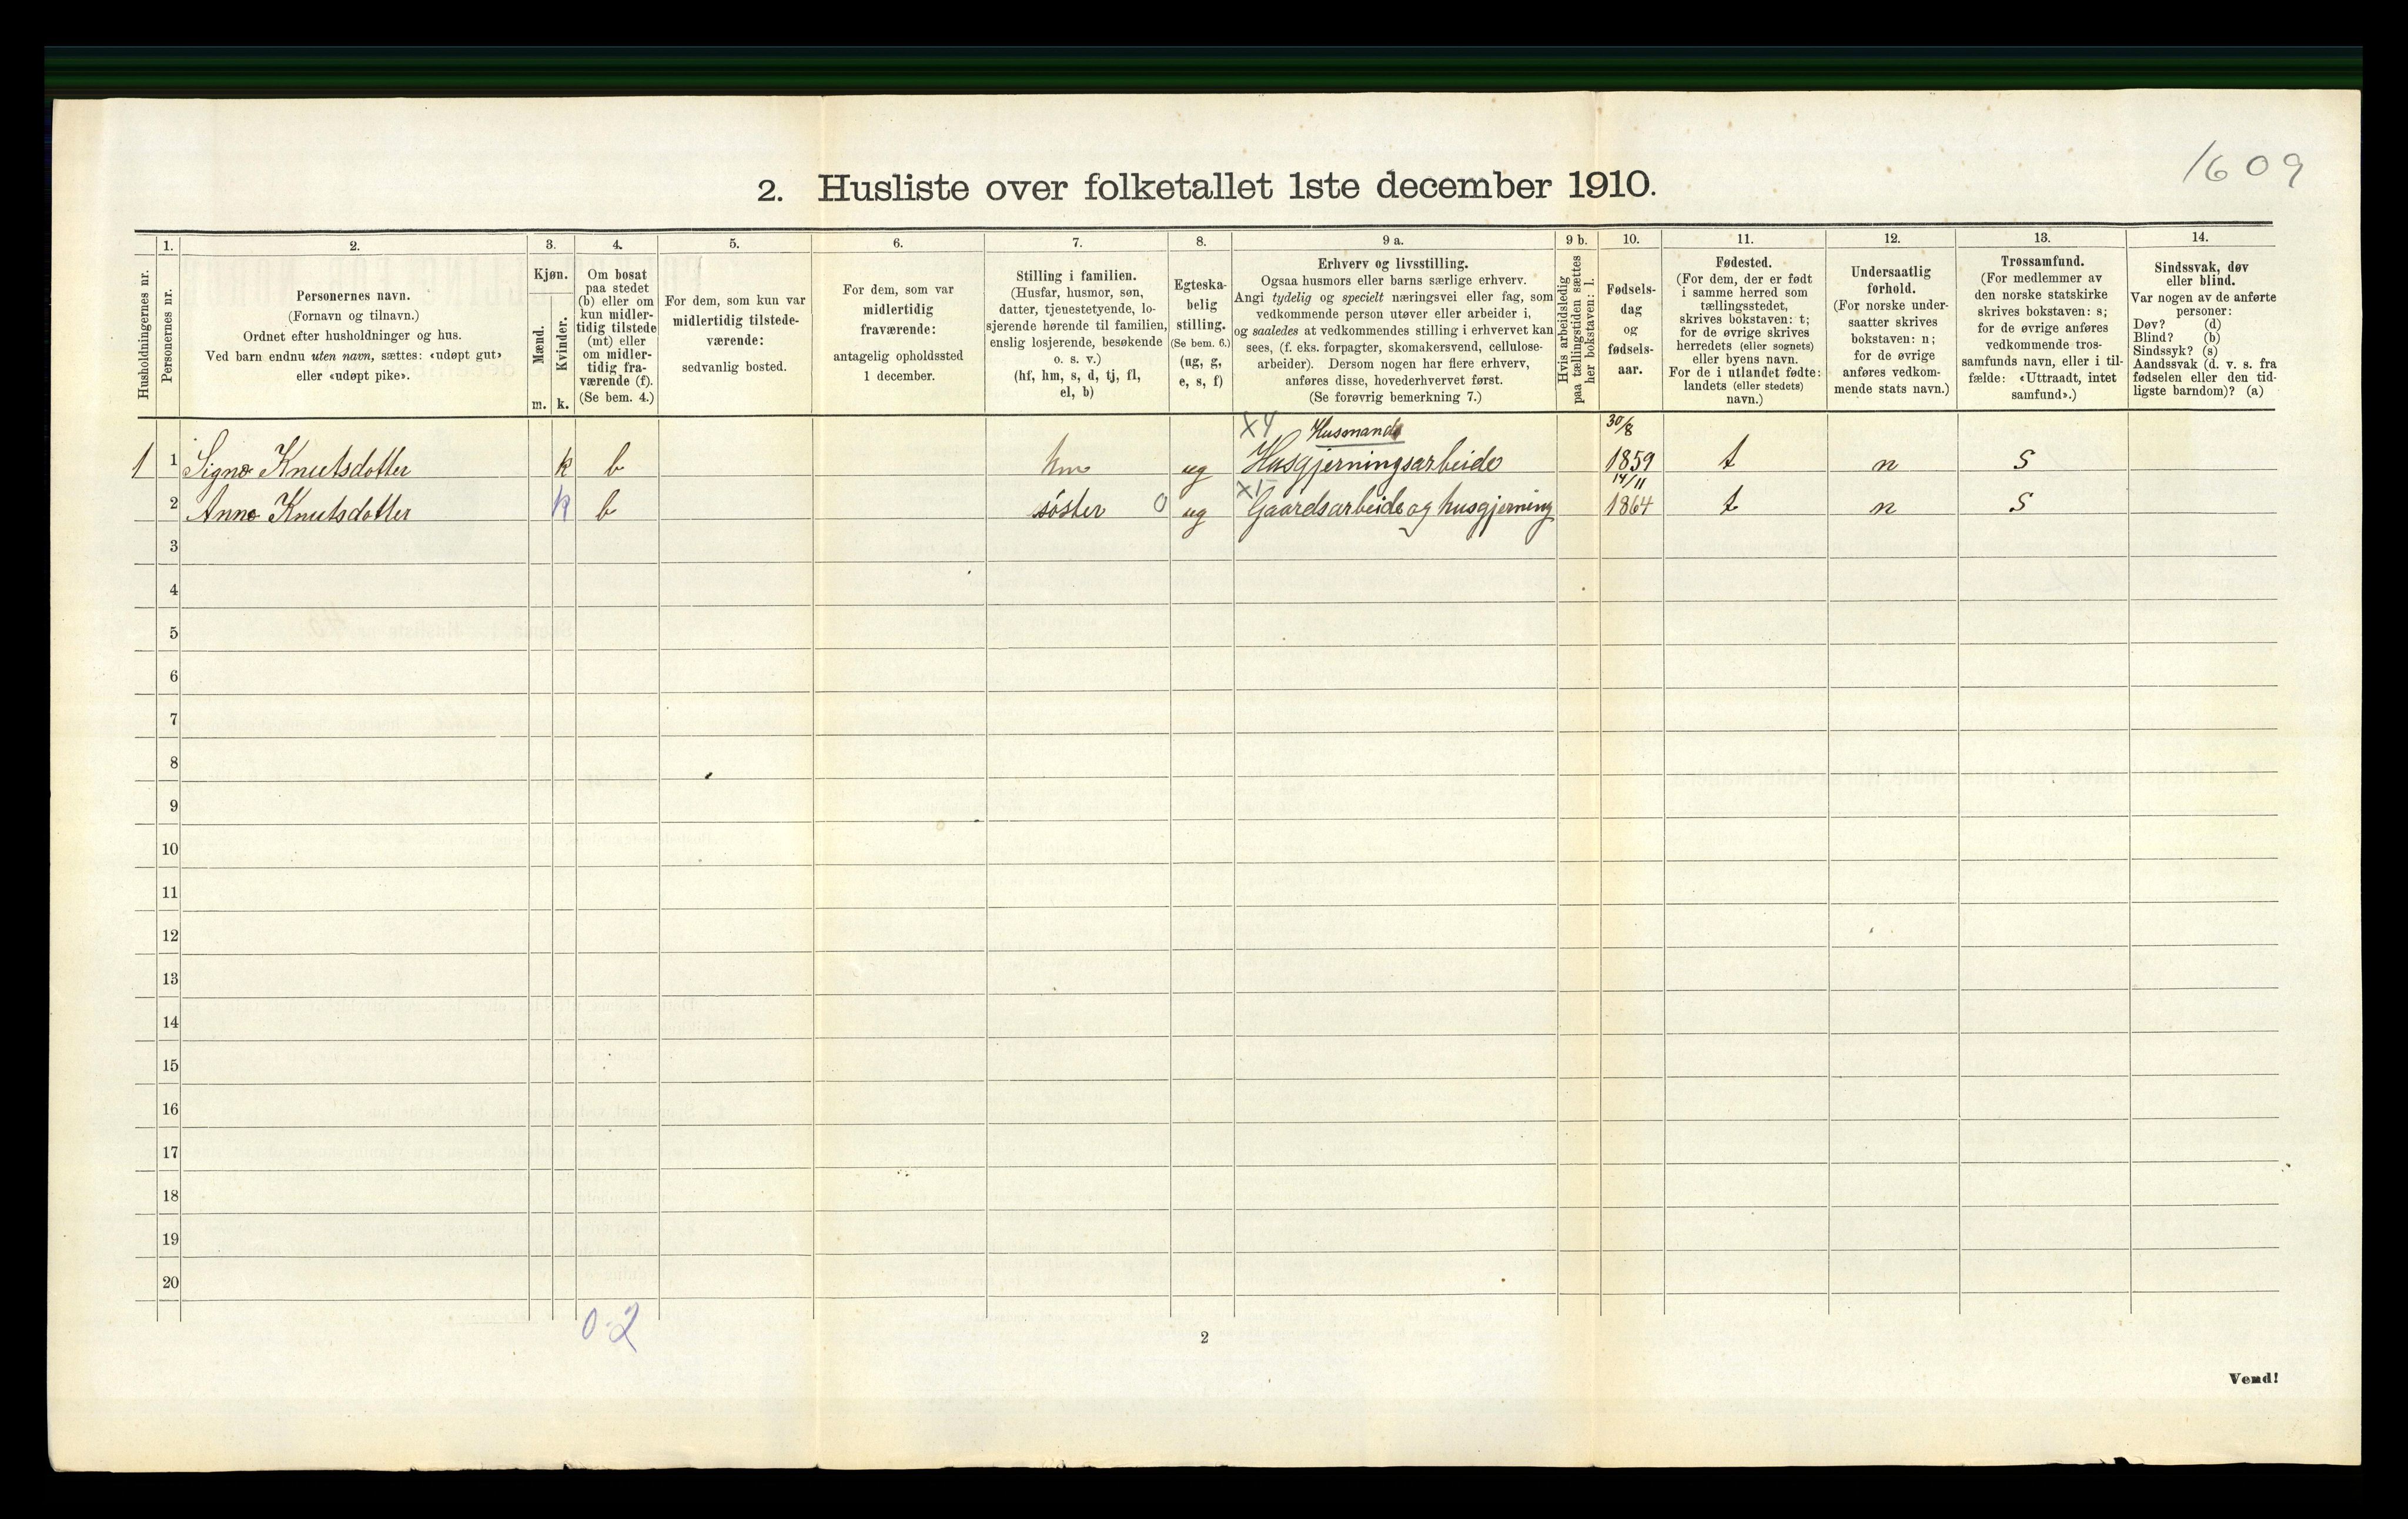 1609
2. Husliste over folketallet 1ste december 1910.
Husholdningernes nr.
1.
Personernes nr.
2.
Personernes navn.
(Fornavn og tilnavn.)
Ordnet efter husholdninger og hus.
Ved barn endnu uten navn, sættes: «udøpt gut»
eller «udøpt pike».
3.
Kjøn.
Mænd.
Kvinder.
m. k.
4.
Om bosat
paa stedet
(b) eller om
kun midler-
tidig tilstede
(mt) eller
om midler-
tidig fra-
værende (f).
(Se bem. 4.)
5.
For dem, som kun var
midlertidig tilstede-
værende:
sedvanlig bosted.
6.
For dem, som var
midlertidig
fraværende:
antagelig opholdssted
1 december.
7.
Stilling i familien.
(Husfar, husmor, søn,
datter, tjenestetyende, lo-
sjerende hørende til familien,
enslig losjerende, besøkende
o. s. v.)
(hf, hm, s, d, tj, fl,
el, b)
8.
Egteska-
belig
stilling.
(Se bem. 6.)
(ug, g,
e, s, f)
9 a.
Erhverv og livsstilling.
Ogsaa husmors eller barns særlige erhverv.
Angi tydelig og specielt næringsvei eller fag, som
vedkommende person utøver eller arbeider i,
og saaledes at vedkommendes stilling i erhvervet kan
sees, (f. eks. forpagter, skomakersvend, cellulose-
arbeider). Dersom nogen har flere erhverv,
anføres disse, hovederhvervet først.
(Se forøvrig bemerkning 7.)
9 b.
Hvis arbeidsledig
paa tællingstiden sættes
her bokstaven: l.
10.
Fødsels-
dag
og
fødsels-
aar.
11.
Fødested.
(For dem, der er født
i samme herred som
tællingsstedet,
skrives bokstaven: t;
for de øvrige skrives
herredets (eller sognets)
eller byens navn.
For de i utlandet fødte:
landets (eller stedets)
navn.)
12.
Undersaatlig
forhold.
(For norske under-
saatter skrives
bokstaven: n;
for de øvrige
anføres vedkom-
mende stats navn.)
13.
Trossamfund.
(For medlemmer av
den norske statskirke
skrives bokstaven: s;
for de øvrige anføres
vedkommende tros-
samfunds navn, eller i til-
fælde: «Uttraadt, intet
samfund».)
14.
Sindssvak, døv
eller blind.
Var nogen av de anførte
personer:
Døv? (d)
Blind? (b)
Sindssyk? (s)
Aandssvak (d. v. s. fra
fødselen eller den tid-
ligste barndom)? (a)
X4 Husmand 30/8
1 1 Signe Knutsdotter k b hm ug Husgjerningsarbeide 1859 t n s
14/11
2 Anne Knutsdotter k b søster 0 ug Gaardsarbeide og husgjerning 1864 t n s
3
4
5
6
7
8
9
10
11
12
13
14
15
16
17
18
19
20
0-2
2
Vend!